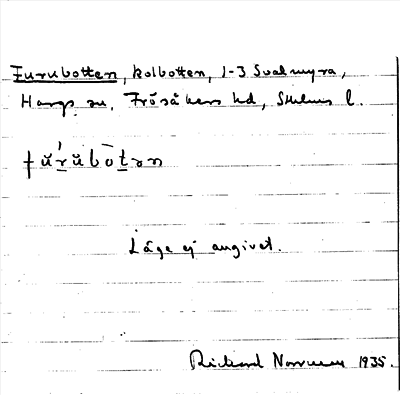 Furubotten, kolbotten, 1-3 Svalmyra,
Hargs sn, Frösåkers hd, Sthlms l.
fúrŭbōtən
Läge ej angivet.
Rickard 1935.